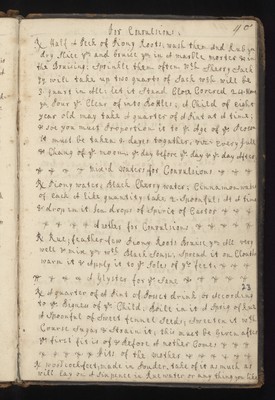 For Convulsions;
40
℞ Half a Peck of Piony Roots; wash them and Rub ym
dry Slice ym and bruise ym in a marble morter &
the Bruising: Sprinkle them often wth Sherry Sack
Yt will take up two quarts of Sack wch will be
3 quarts in all; let it stand Close Covered 24 Hours
yn Pour ye Clear of into Bottles: A Child of Eight
year old may take a quarter of a Pint at a time;
& so you must Proportion it to ye Age of ye
it must be taken 3 dayes together, Every full
& Chang of ye moon; ye day before ye day & ye day After
waters for Convulsions
℞ Piony water, Black Cherry water, Cinnamon water
of each a like quantity, take 2 Spoonfuls at a time
& drop in it ten drops of Spirit of Castor
Another for Convulsions
℞ Rue, featherfew Piony Roots Bruise ym All very
well & mix ym wth Black Soape, Spread it on Cloaths
warm it & Apply it to ye Soles of ye feet;
A Glyster for ye Same
23
℞ A quarter of a Pint of Posset drink or According
to ye Bigness of ye Child; Boile in it a Sprig of
A Spoonful of Sweet fennel Seeds; Sweeten it with
Course Sugar & Strain it; this must be Given after
ye first fit is of & Before Another Comes
Fits of the mother
℞ made in Powder, take of it as much as
will lay on a Sixpence in Rue water, or any thing you like